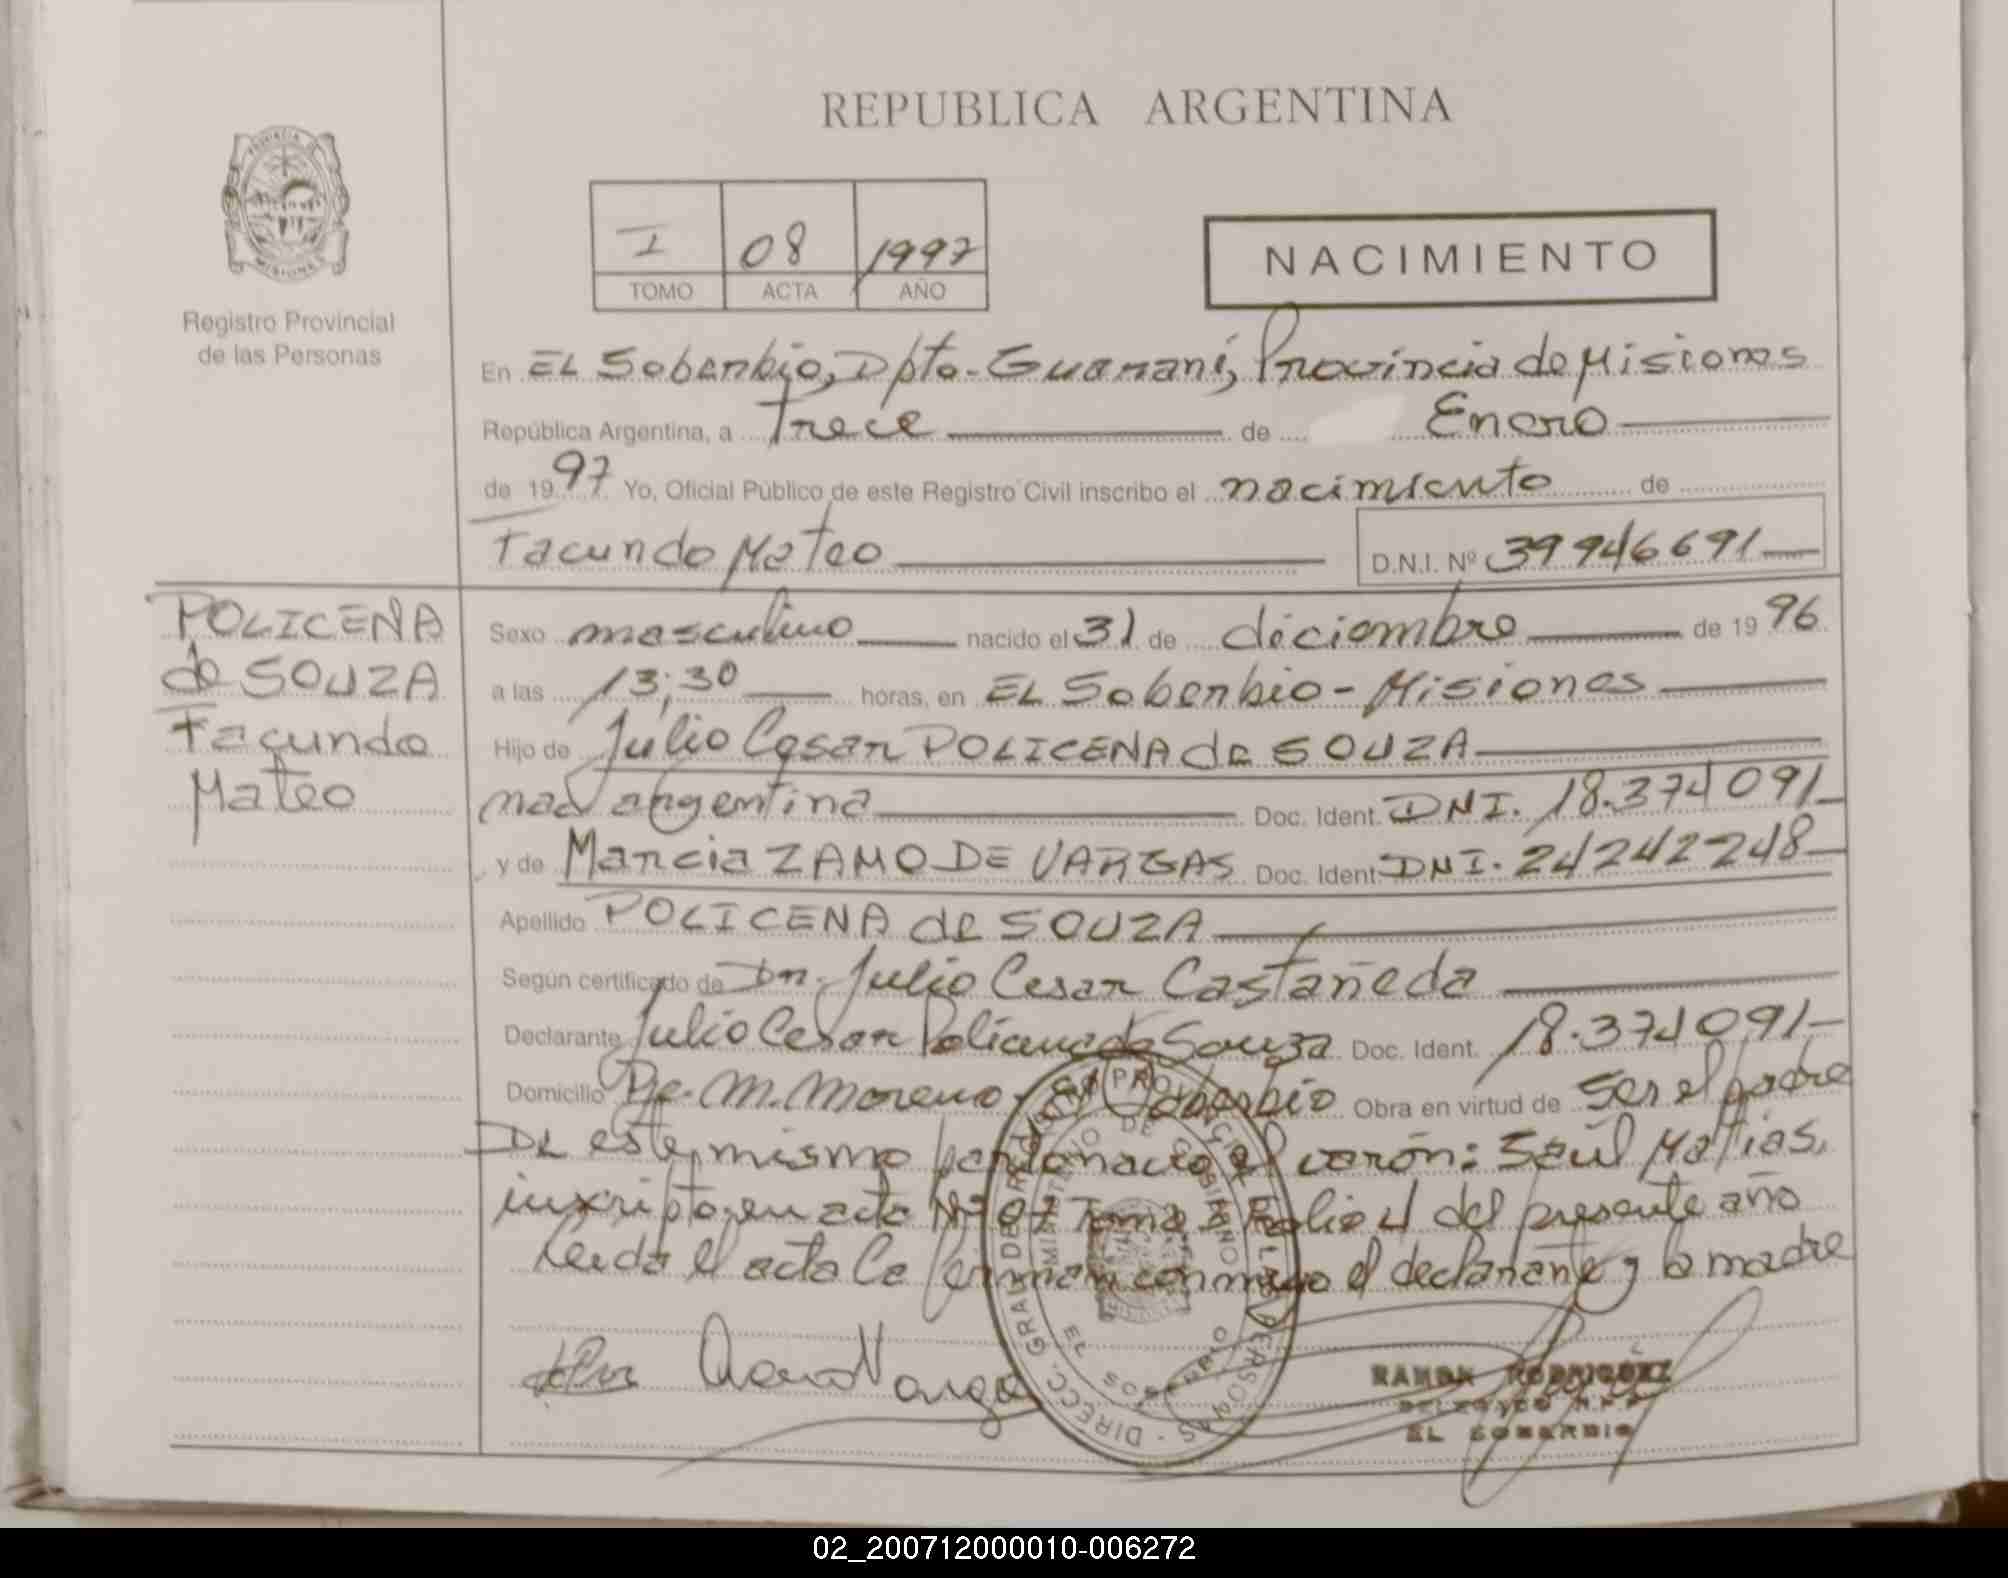 REPUBLICA ARGENTINA
PROVINCIA D
MISIONES
Registro Provincial
de las Personas
I 08 1997
TOMO ACTA AÑO
NACIMIENTO
En EL Soberbio, Dpto. Guaraní, Provincia de Misiones
República Argentina, a Trece de Enero
de 1997 Yo, Oficial Público de este Registro Civil inscribo el nacimiento de
Facundo Mateo D.N.I. Nº 39946691
POLICENA
de SOUZA
Facundo
Mateo
Sexo masculino nacido el 31 de diciembre de 1996
a las 13;30 horas, en EL Soberbio - Misiones
Hijo de Julio Cesar POLICENA de SOUZA
nac argentina Doc. Ident. DNI. 18.374091
y de Marcia ZAMO DE VARGAS Doc. Ident. DNI. 24242248
Apellido POLICENA de SOUZA
Según certificado de Dr. Julio Cesar Castañeda
Declarante Julio Cesar Policena de Souza Doc. Ident. 18.374091
Domicilio Pje. M. Moreno El Soberbio Obra en virtud de ser el padre
De este mismo parto nacio el varón: Saúl Matias,
inxcripto en acta Nº 07 Tomo I Folio 4 del presente año
Leida el acta la firman conmigo el declarante y la madre
RAMON RODRIGUEZ
DELEGADO R.P.P.
EL SOBERBIO
02_200712000010-006272